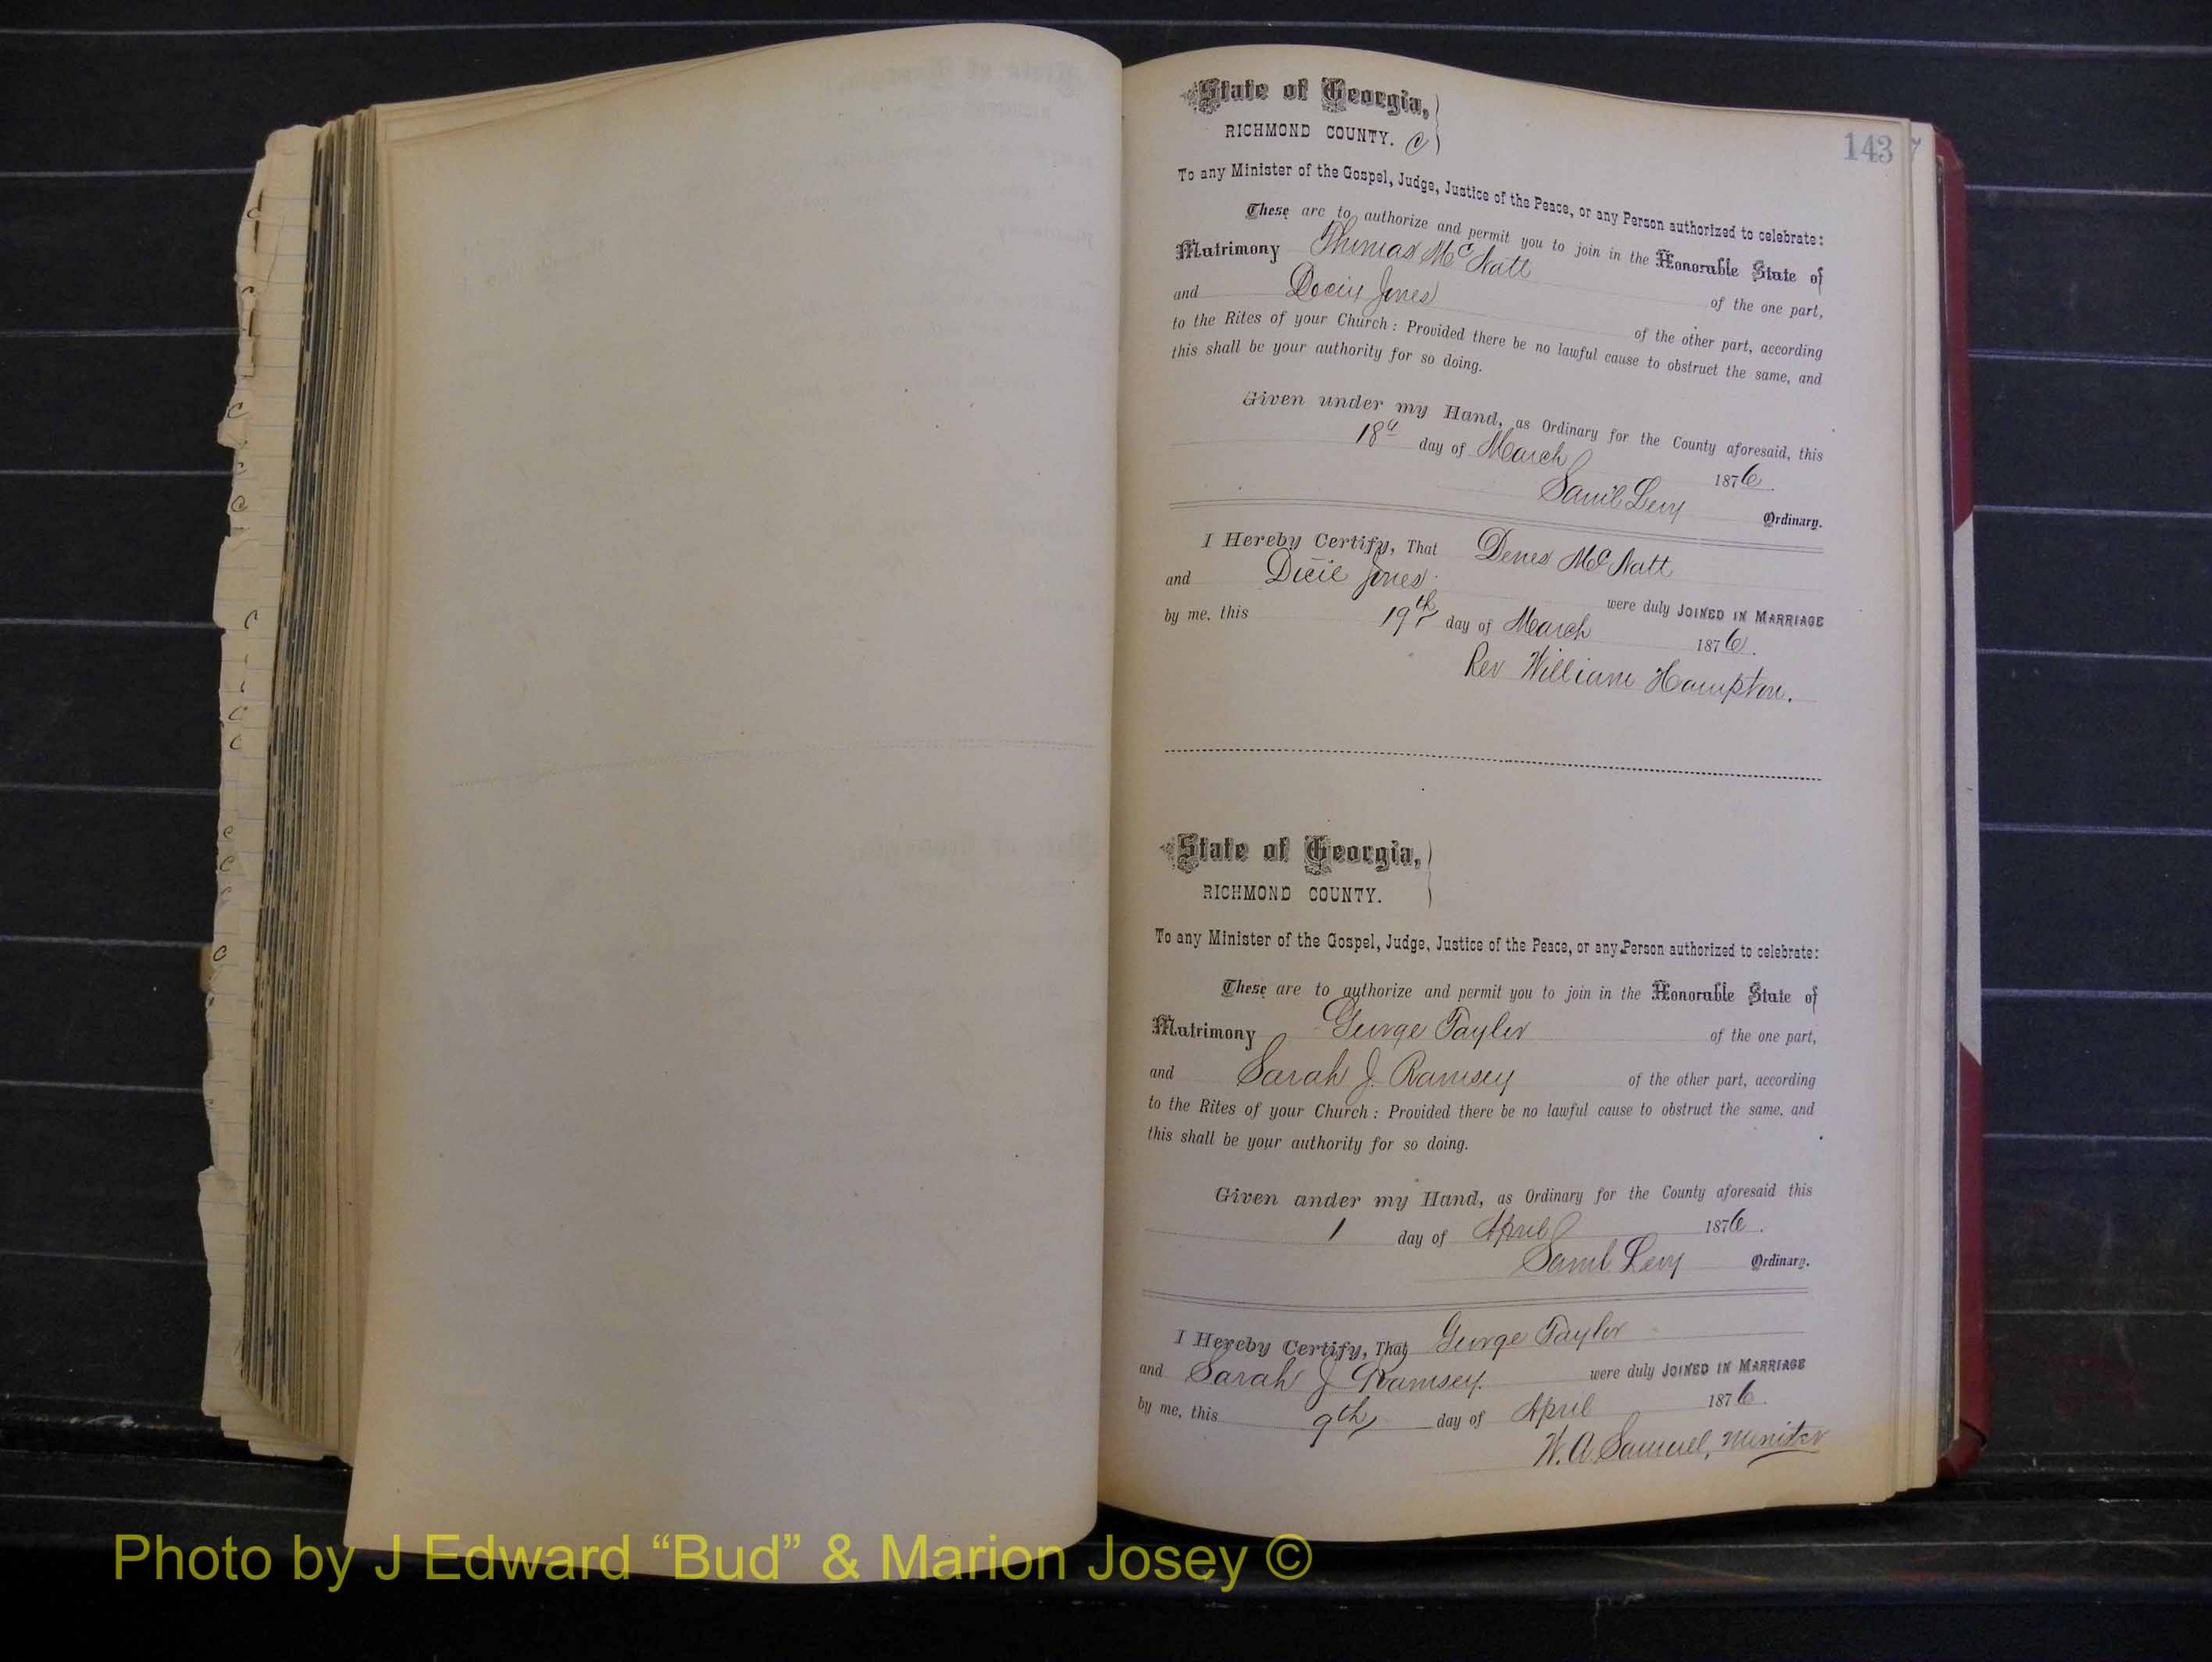 State of Georgia,
RICHMOND COUNTY. C
143
To any Minister of the Gospel, Judge, Justice of the Peace, or any Person authorized to celebrate:
These are to authorize and permit you to join in the Honorable State of
Matrimony Thomas McNatt of the one part,
and Docie Jones of the other part, according
to the Rites of your Church: Provided there be no lawful cause to obstruct the same, and
this shall be your authority for so doing.
Given under my Hand, as Ordinary for the County aforesaid, this
18 day of March 1876.
Saml Levy Ordinary.
I Hereby Certify, That Denes McNatt
and Dicie Jones were duly JOINED IN MARRIAGE
by me, this 19th day of March 1876.
Rev William Hampton.
State of Georgia,
RICHMOND COUNTY.
To any Minister of the Gospel, Judge, Justice of the Peace, or any Person authorized to celebrate:
These are to authorize and permit you to join in the Honorable State of
Matrimony George Taylor of the one part,
and Sarah J. Ramsey of the other part, according
to the Rites of your Church: Provided there be no lawful cause to obstruct the same, and
this shall be your authority for so doing.
Given under my Hand, as Ordinary for the County aforesaid this
1 day of April 1876.
Saml Levy Ordinary.
I Hereby Certify, That George Taylor
and Sarah J Ramsey. were duly JOINED IN MARRIAGE
by me, this 9th day of April 1876.
W. A. Samuel, Minister
Photo by J Edward “Bud” & Marion Josey ©